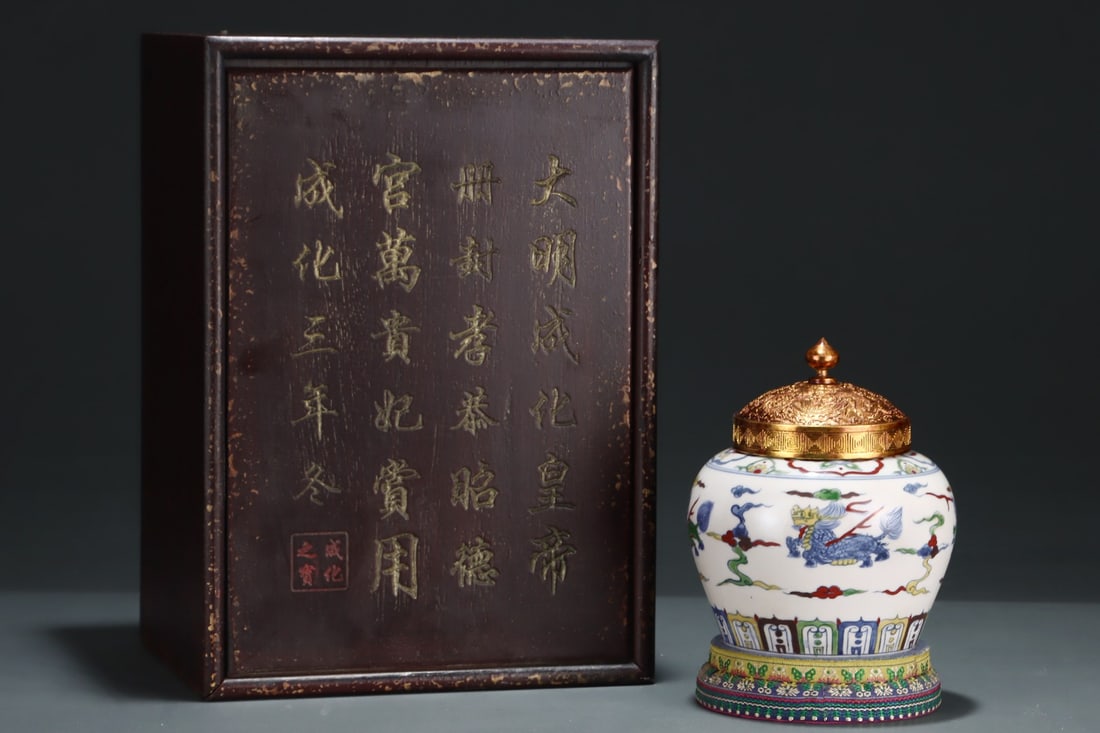 大明成化皇帝
册封孝恭昭德
宮萬貴妃賞用
成化三年冬
成化之寳